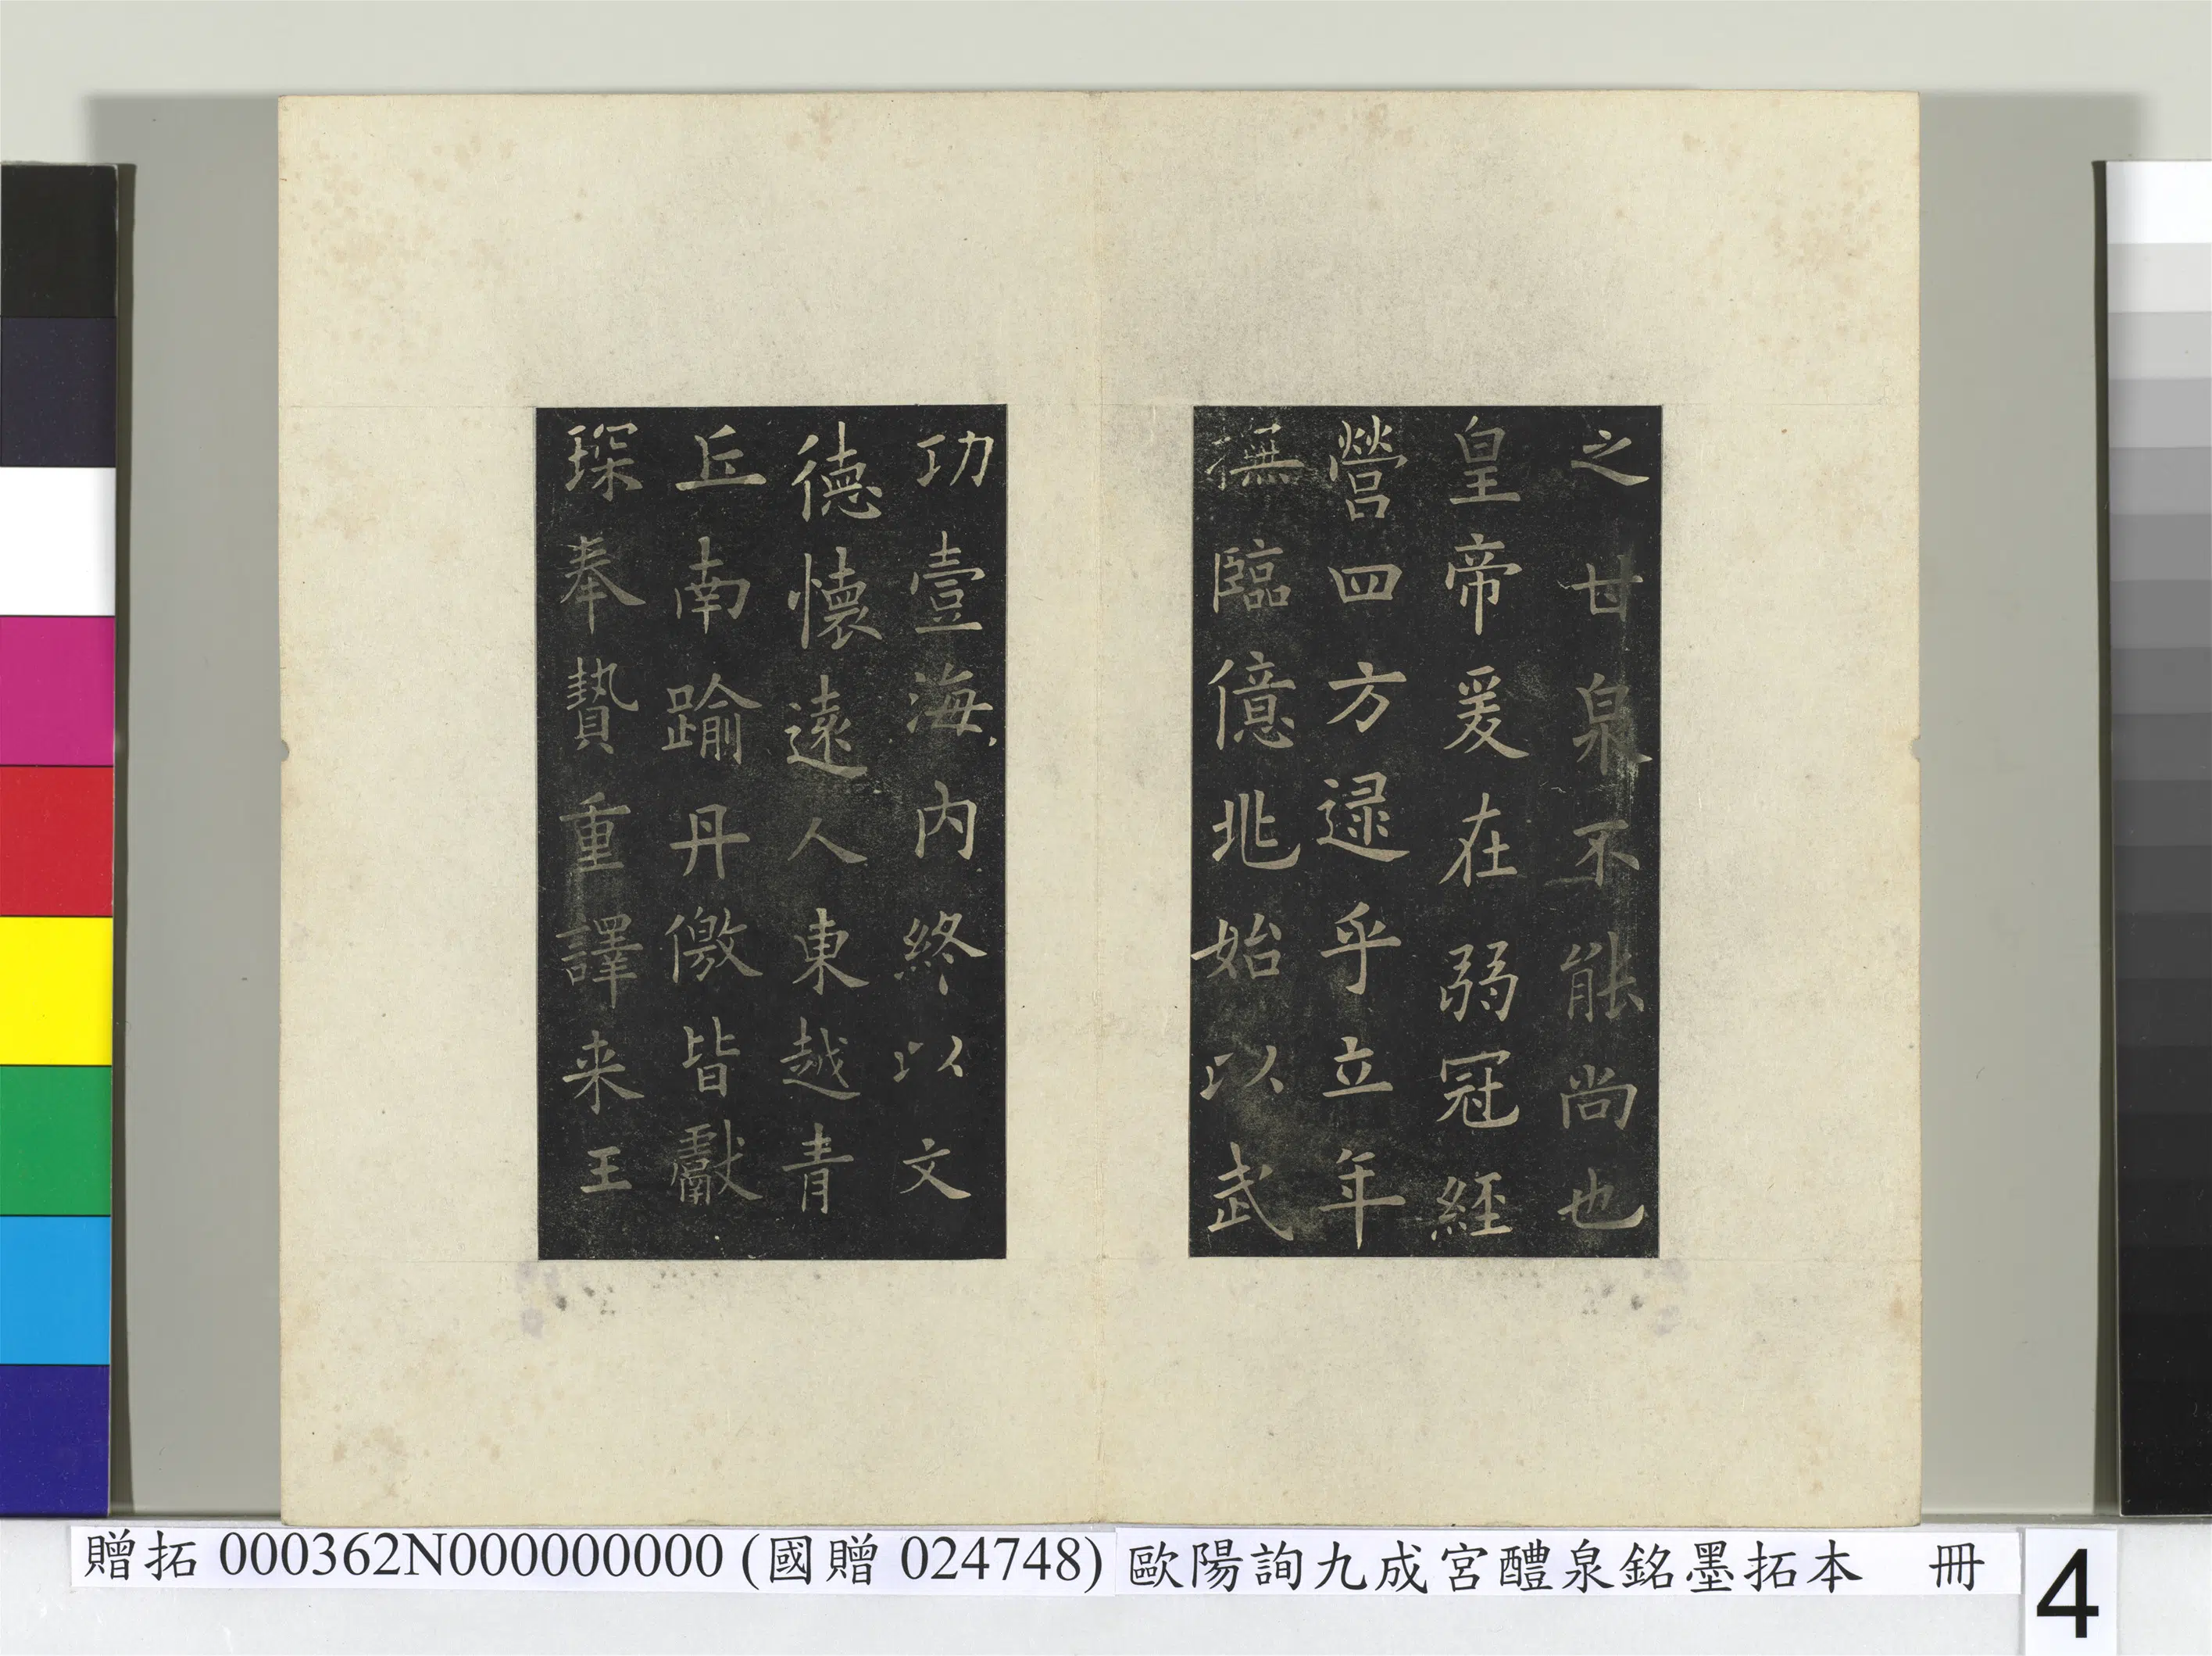 之甘泉不能尚也
皇帝爰在弱冠經
營四方逯乎立年
撫臨億兆始以武
功壹海內終以文
德懷遠人東越青
丘南踰丹儌皆獻
琛奉贄重譯来王
贈拓 000362N000000000 (國贈 024748) 歐陽詢九成宮醴泉銘墨拓本 冊
4